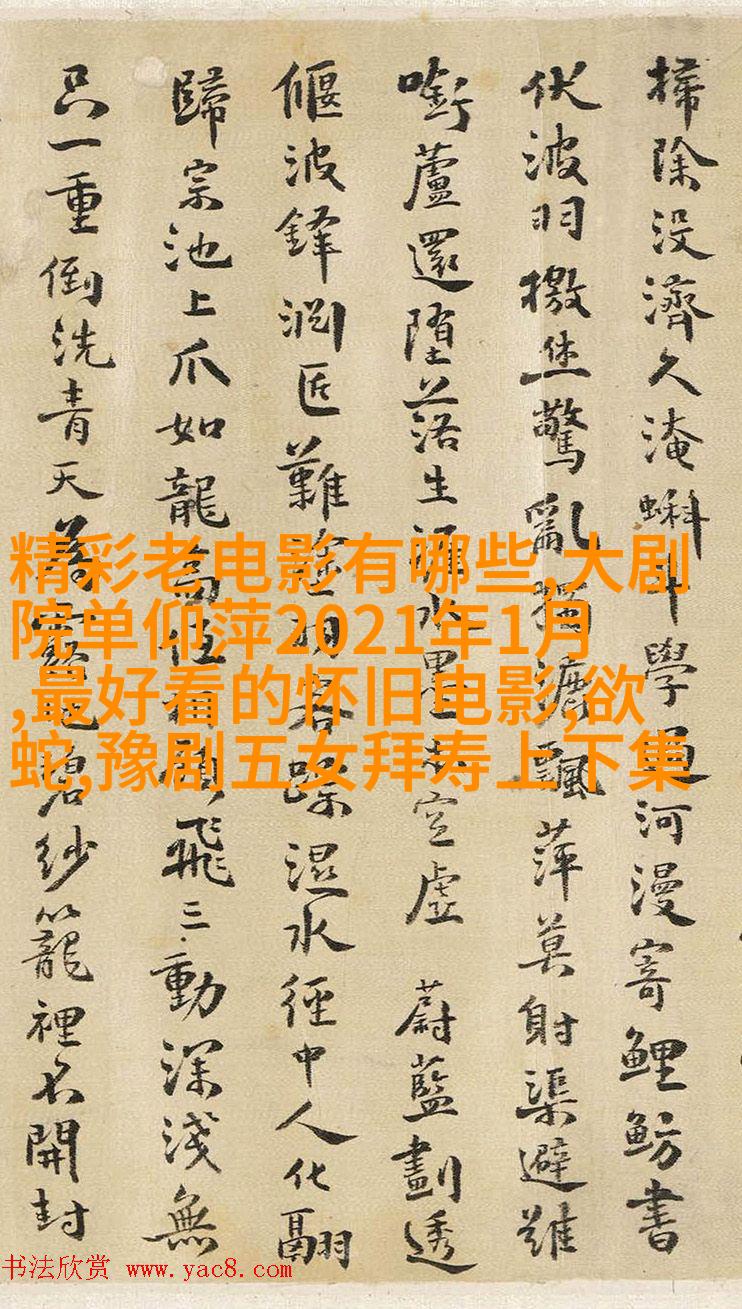 掃除没濟久淹蝌蚪學通河漫寄鯉魴書
伏波羽檄驚亂獨漉飄萍莫射渠避難
啣蘆還墮落生涯水墨空虛 蔚藍劃透
偃波鋒難途踪濕水徑中人化翮
歸宗池上爪如龍飛三動深淺無
只一重倒洗青天碧紗籠裡不開封
精彩老电影有哪些,大剧
院单仰萍2021年1月
,最好看的怀旧电影,欲
蛇,豫剧五女拜寿上下集
书法欣赏 www.yac8.com